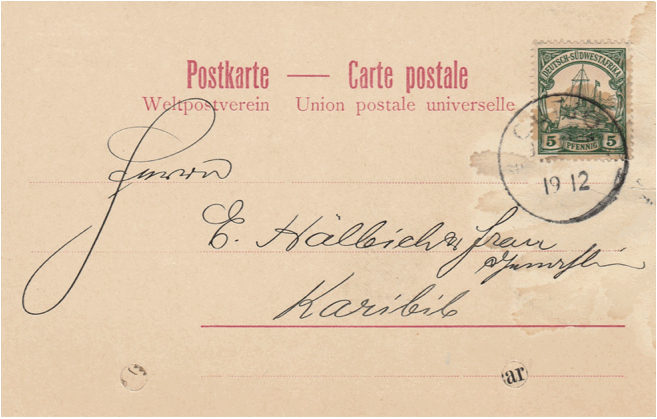 Postkarte — Carte postale
Weltpostverein Union postale universelle
DEUTSCH-SÜDWESTAFRIKA
5 PFENNIG 5
19 12
Herrn
E. Hälbich & Frau
Gemahlin
Karibib
ar